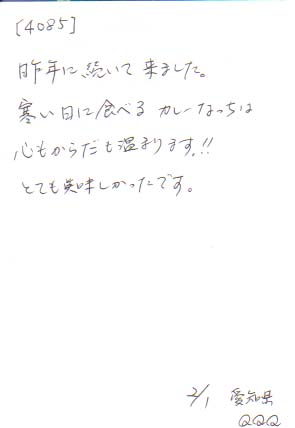 [4085]
昨年に続いて来ました。
寒い日に食べるカレーなっちは
心もからだも温まります!!
とても美味しかったです。
2/1 愛知県
QQQ